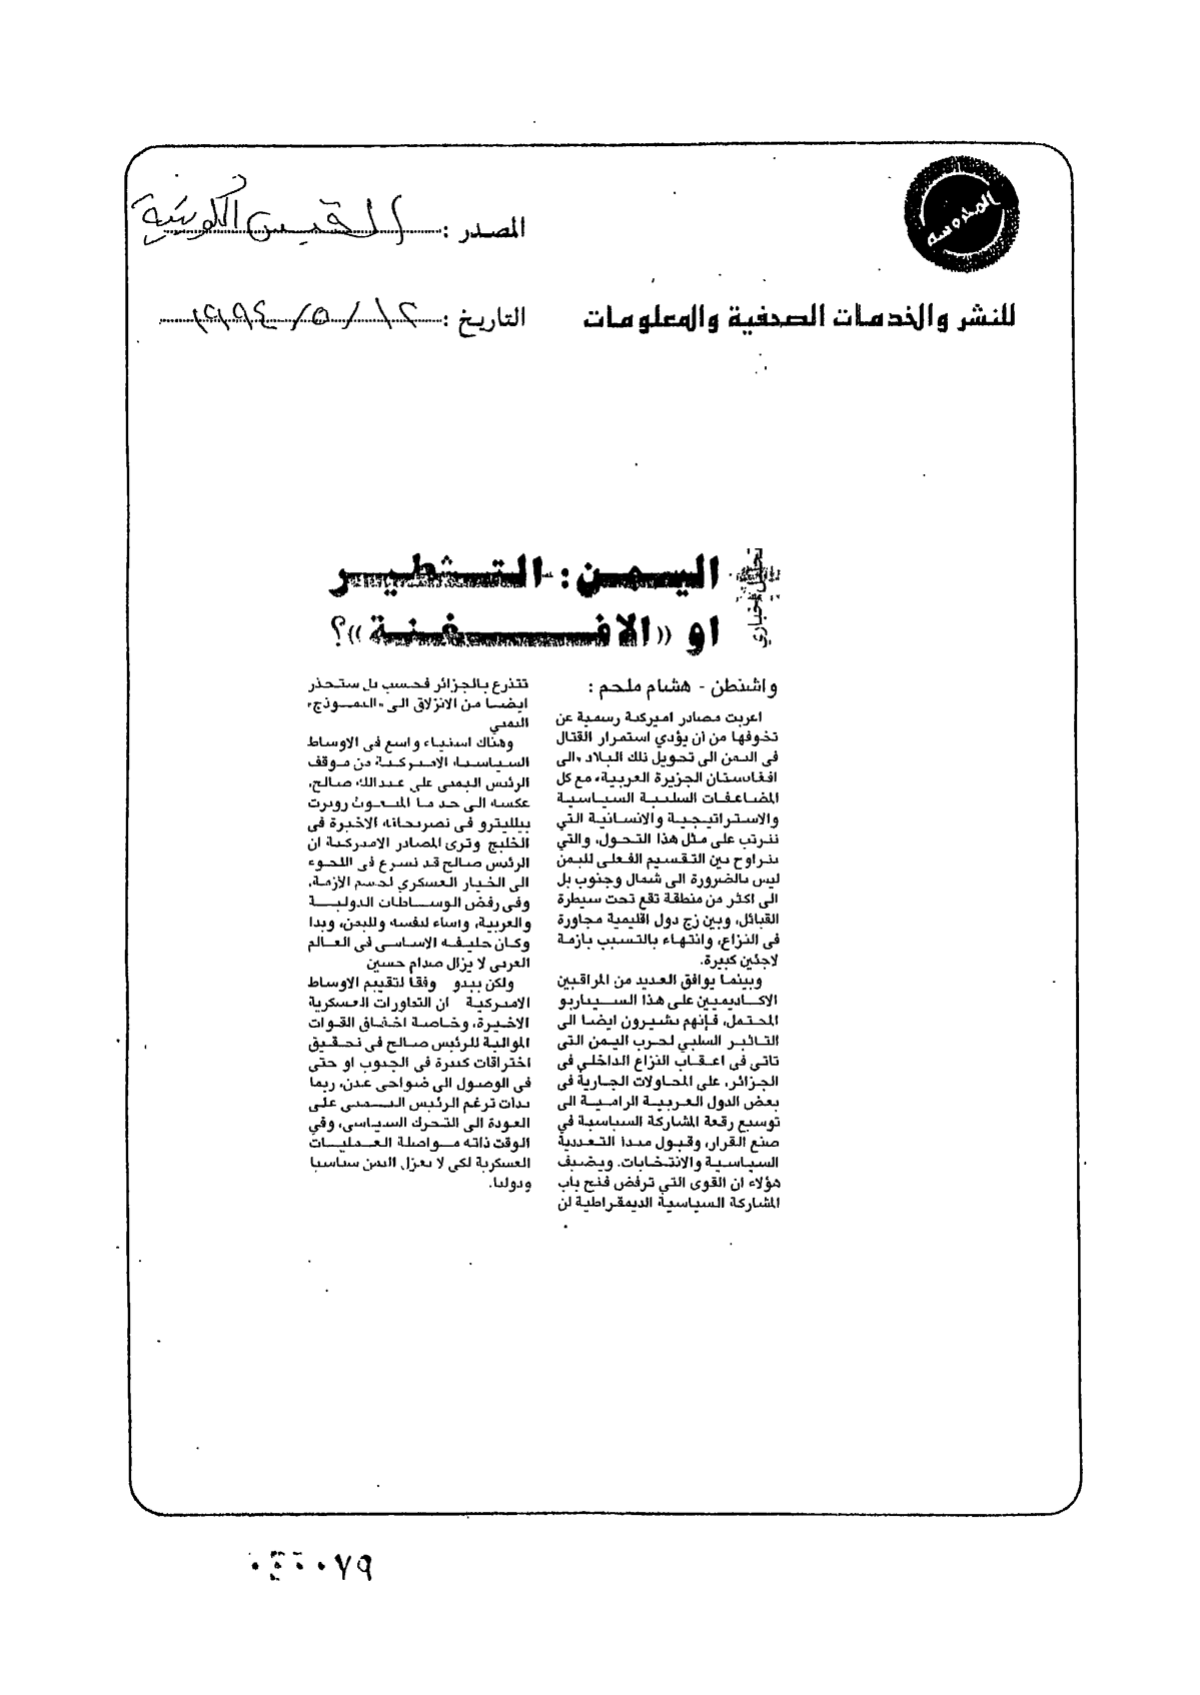 المدروسه
المصدر : القبس الكويتية
للنشر والخدمات الصحفية والمعلومات
التاريخ : ١٢ / ٥ / ١٩٩٤
تحليل اخباري
اليمن: التشطير
او «الافغنة»؟
واشنطن - هشام ملحم :
اعربت مصادر اميركية رسمية عن
تخوفها من ان يؤدي استمرار القتال
في اليمن الى تحويل تلك البلاد «الى
افغانستان الجزيرة العربية» مع كل
المضاعفات السلبية السياسية
والاستراتيجية والانسانية التي
تترتب على مثل هذا التحول، والتي
تتراوح بين التقسيم الفعلي لليمن
ليس بالضرورة الى شمال وجنوب بل
الى اكثر من منطقة تقع تحت سيطرة
القبائل، وبين زج دول اقليمية مجاورة
في النزاع، وانتهاء بالتسبب بازمة
لاجئين كبيرة.
وبينما يوافق العديد من المراقبين
الاكاديميين على هذا السيناريو
المحتمل، فإنهم يشيرون ايضا الى
التاثير السلبي لحرب اليمن التي
تاتي في اعقاب النزاع الداخلي في
الجزائر، على المحاولات الجارية في
بعض الدول العربية الرامية الى
توسيع رقعة المشاركة السياسية في
صنع القرار، وقبول مبدا التعددية
السياسية والانتخابات. ويضيف
هؤلاء ان القوى التي ترفض فتح باب
المشاركة السياسية الديمقراطية لن
تتذرع بالجزائر فحسب بل ستحذر
ايضا من الانزلاق الى «النموذج»
اليمني
وهناك استياء واسع في الاوساط
السياسية الاميركية من موقف
الرئيس اليمني علي عبدالله صالح،
عكسه الى حد ما المبعوث روبرت
بيلليترو في تصريحاته الاخيرة في
الخليج وترى المصادر الاميركية ان
الرئيس صالح قد تسرع في اللجوء
الى الخيار العسكري لحسم الازمة،
وفي رفض الوساطات الدولية
والعربية، واساء لنفسه ولليمن، وبدا
وكان حليفه الاساسي في العالم
العربي لا يزال صدام حسين
ولكن يبدو وفقا لتقييم الاوساط
الاميركية ان التطورات العسكرية
الاخيرة، وخاصة اخفاق القوات
الموالية للرئيس صالح في تحقيق
اختراقات كبيرة في الجنوب او حتى
في الوصول الى ضواحي عدن، ربما
بدات ترغم الرئيس اليمني على
العودة الى التحرك السياسي، وفي
الوقت ذاته مواصلة العمليات
العسكرية لكي لا يعزل اليمن سياسيا
ودوليا.